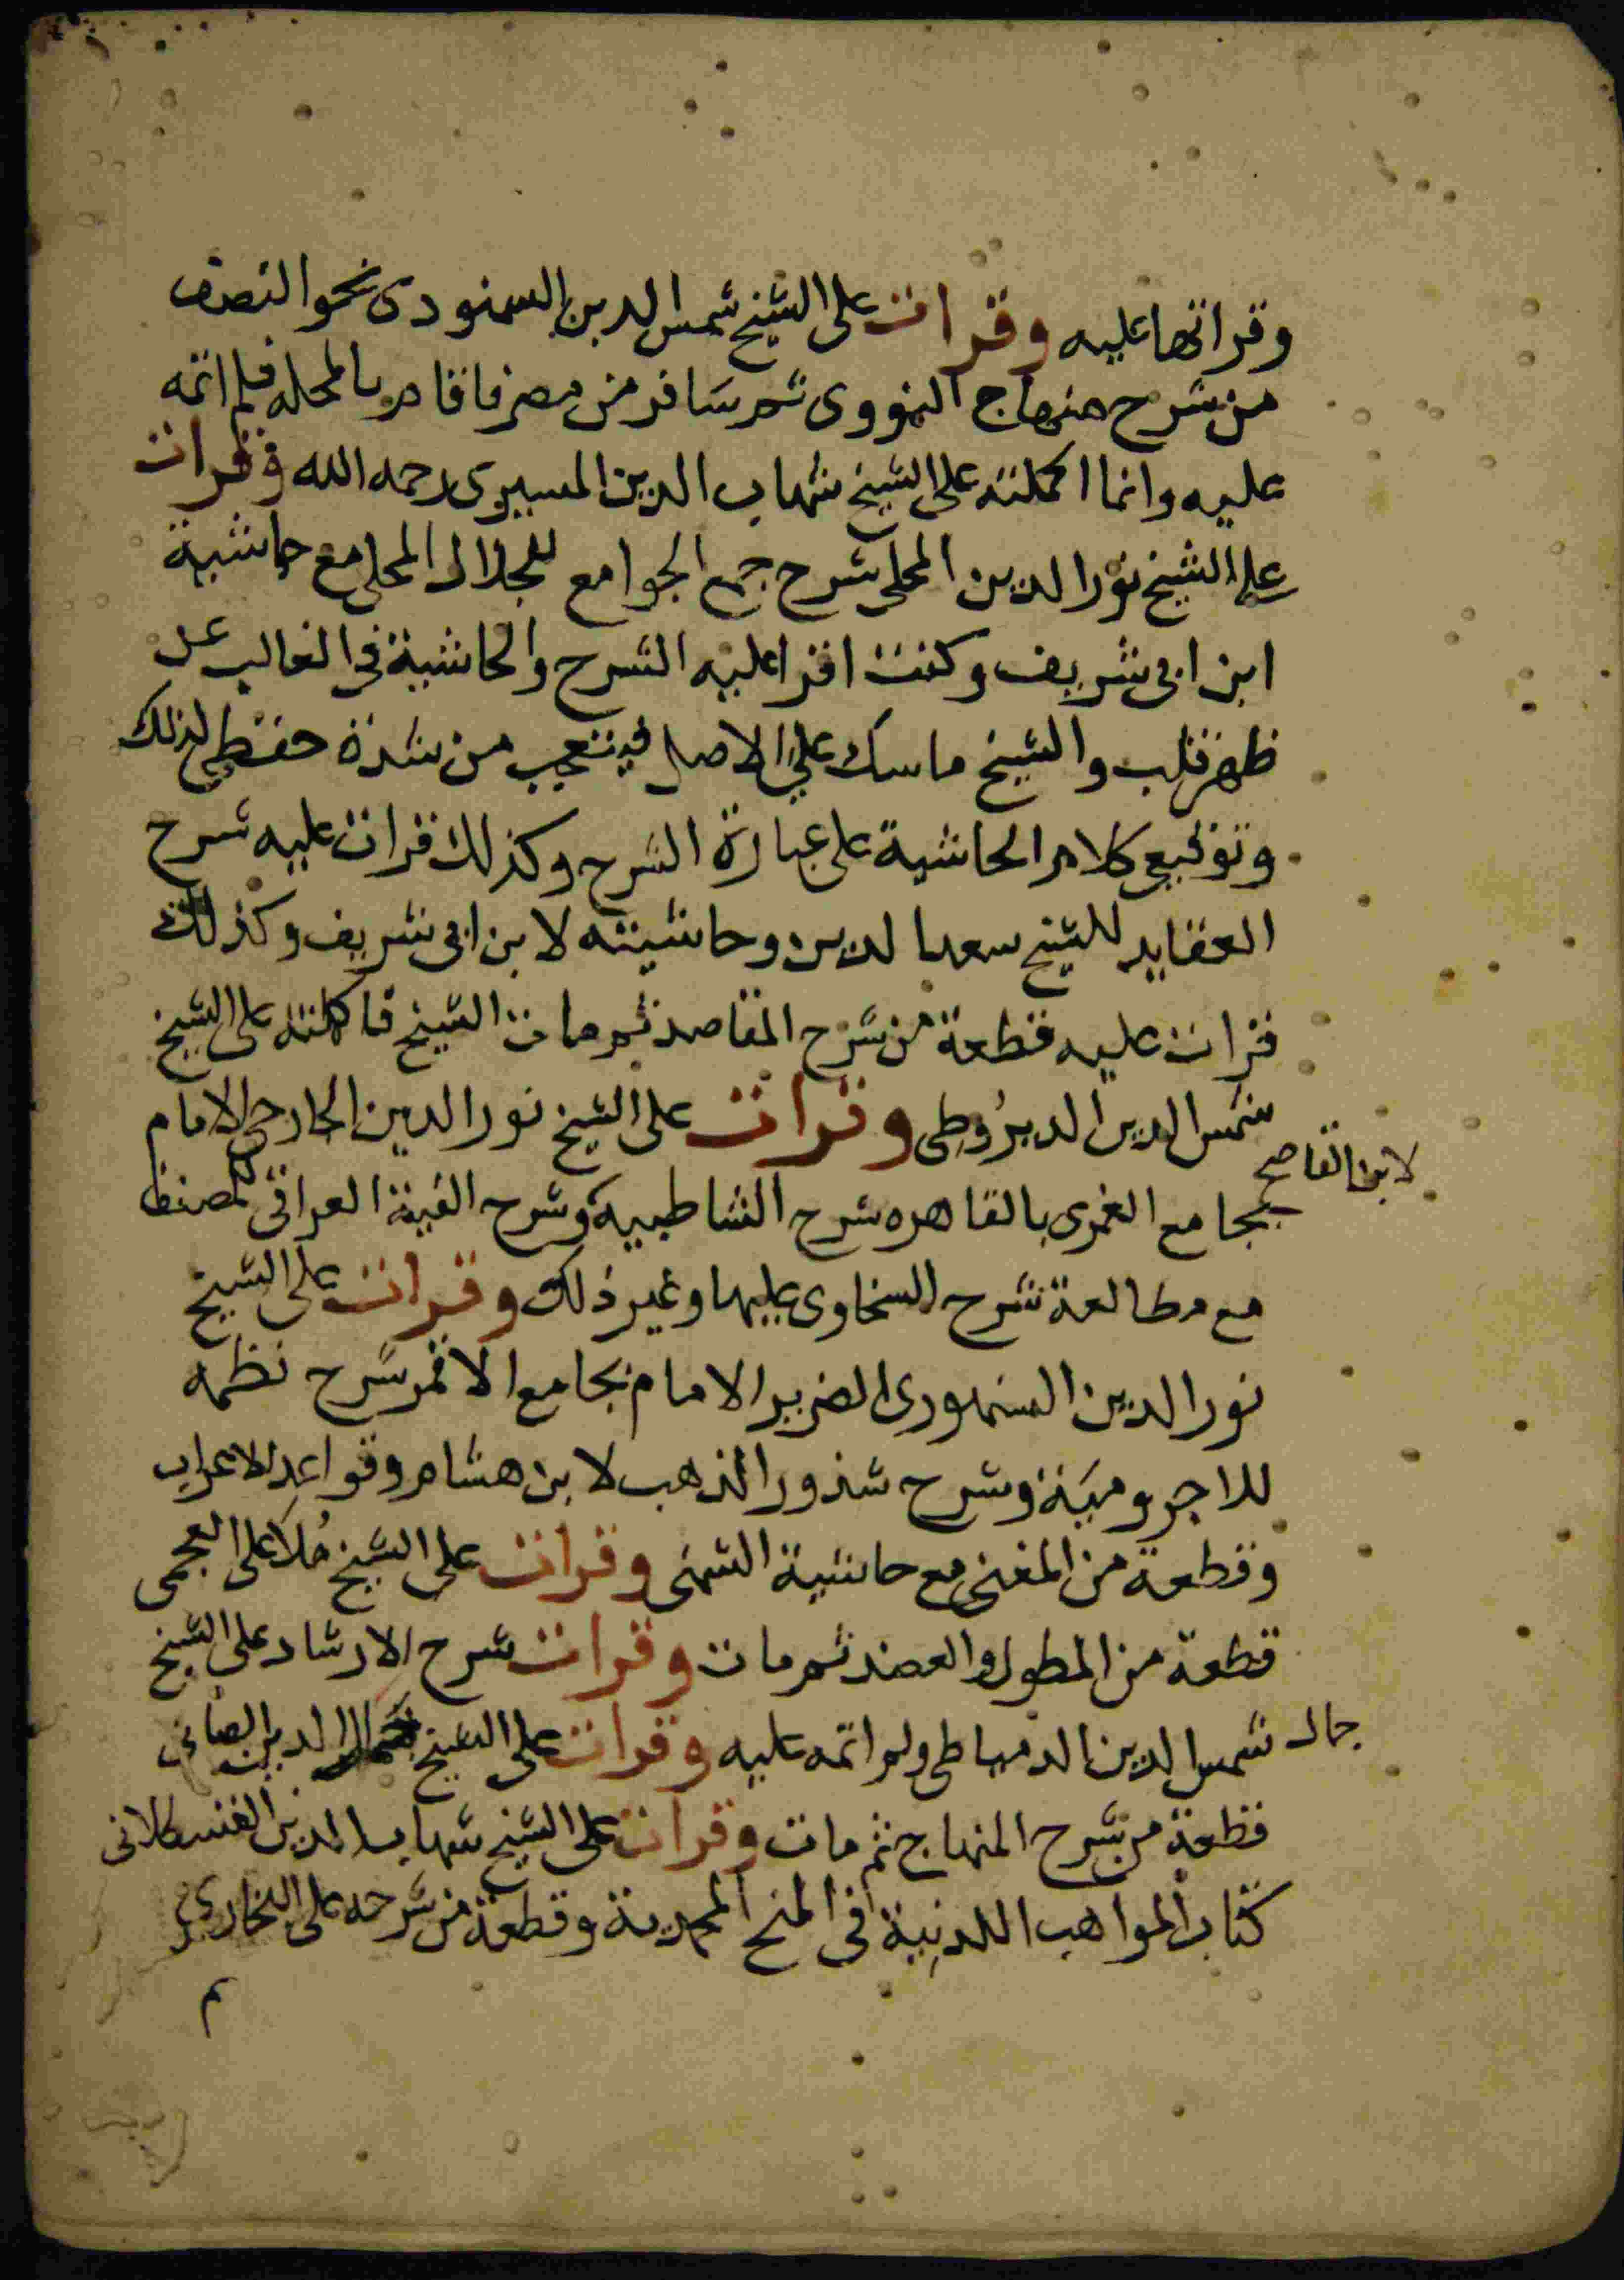 وقراتها عليه وقرات على الشيخ شمس الدين السمنودى نحو النصف
من شرح منهاج النووى ثم سافر من مصر فاقام بالمحله فلم اتمه
عليه وانما اكملته على الشيخ شهاب الدين المسيرى رحمه الله وقرات
على الشيخ نور الدين المحلى شرح جمع الجوامع للجلال المحلى مع حاشية
ابن ابى شريف وكنت اقرا عليه الشرح والحاشية فى الغالب عل
ظهر قلب والشيخ ماسك على الاصل فيتعجب من شدة حفظى لذلك
وتوقيع كلام الحاشية على عبارة الشرح وكذلك قرات عليه شرح
العقايد للشيخ سعد الدين وحاشيته لابن ابى شريف وكذلك
قرات عليه قطعة من شرح المقاصد ثم مات الشيخ فاكملته على الشيخ
شمس الدين الديروطى وقرات على الشيخ نور الدين الجارحى الامام
بجامع الغمرى بالقاهره شرح الشاطبيه وشرح الفية العراقى للمصنف
لابن القاصح
مع مطالعة شرح السخاوى عليها وغير ذلك وقرات على الشيخ
نور الدين السنهورى الضرير الامام بجامع الاقمر شرح نظمه
للاجرومية وشرح شذور الذهب لابن هشام وقواعد الاعراب
وقطعة من المغنى مع حاشية الشمنى وقرات على الشيخ مُلاّ على العجمى
قطعة من المطول والعضد ثم مات وقرات شرح الارشاد على الشيخ
شمس الدين الدمياطى ولم اتمه عليه وقرات على الشيخ الدين الصانى
جمال
قطعة من شرح المنهاج ثم مات وقرات على الشيخ شهاب الدين القسطلانى
كتاب المواهب اللدنية فى المنح المحمدية وقطعة من شرحه على البخارى
م